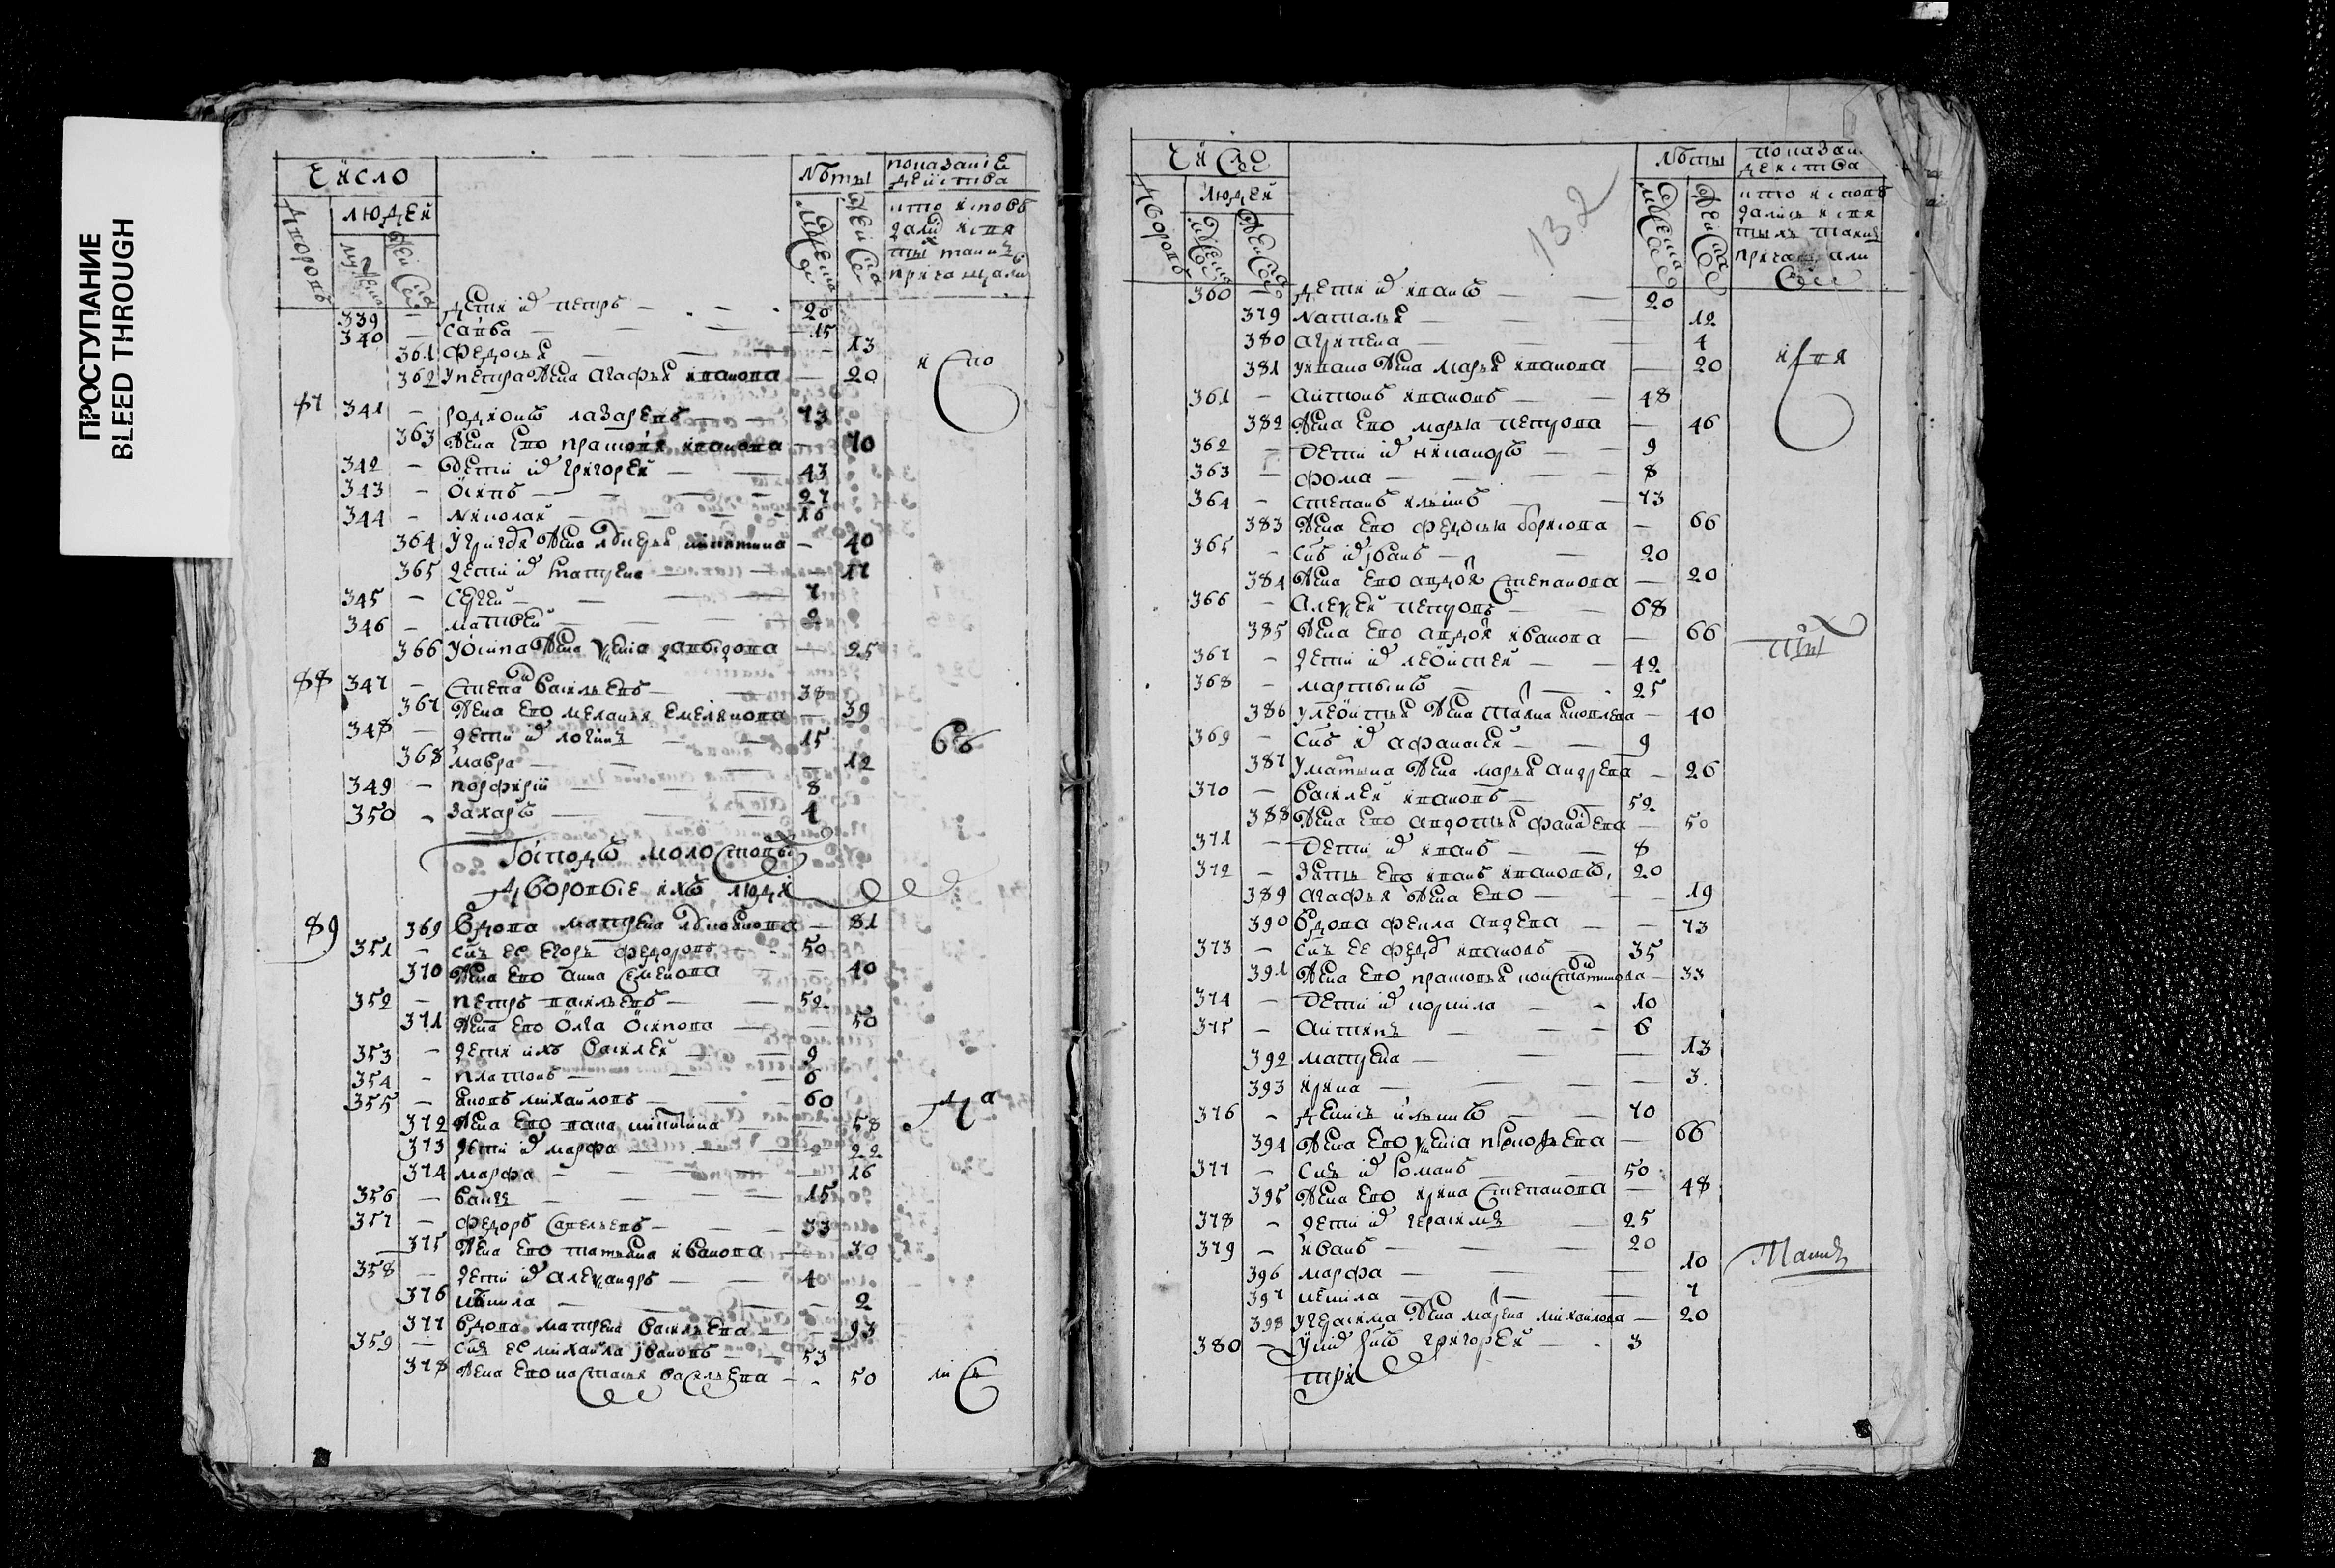 ПРОСТУПАНИЕ
BLEED THROUGH
Число
людей
Дворовъ
мужеска
женска
лѣты
мужеска
женска
показание
действа
кто исповѣ
дали и свя
тыхъ таинъ
причащали
339 — дети ихъ петръ — 20
340 — савва — 15
361 федосья — 13
362 у петра жена агафья иванова — 20
исно
87 341 — родионъ лазаревъ — 73
363 жена ево прасковья иванова — 70
342 — дети ихъ григорей — 43
343 — осипъ — 27
344 — николай — 16
364 у григорья жена никитина — 40
365 дети ихъ матрена — 17
345 — сергей — 7
346 — матвей — 2
366 у осипа жена ксения давыдова — 25
88 347 — степанъ васильевъ — 38
367 жена ево меланья емельянова — 39
348 — дети ихъ логинъ — 15
368 мавра — 12
349 — порфирий — 8
350 — захаръ — 4
Господъ молостовыхъ
дворовые ихъ люди
89 369 вдова матрена — 81
351 — сынъ ее егоръ федоровъ — 50
370 жена ево анна семенова — 40
352 — петръ васильевъ — 52
371 жена ево олга осипова — 50
353 — дети ихъ василей — 9
354 — платонъ — 6
355 — яковъ михайловъ — 60
372 жена ево никитина — 58
373 дети ихъ марфа — 22
374 марфа — 16
356 — 15
357 — федоръ савельевъ — 33
375 жена ево татьяна иванова — 30
358 — дети ихъ александръ — 4
376 — 2
377 вдова матрена васильева — 93
359 — сынъ ее михайла ивановъ — 53
378 жена ево настасья васильева — 50
132
Число
людей
Дворовъ
мужеска
женска
лѣты
мужеска
женска
показан
действа
кто исповѣ
дались и свя
тыхъ таинъ
причащали
360 — дети ихъ иванъ — 20
379 наталья — 12
380 агрипена — 4
381 у ивана жена марья иванова — 20
361 — антонъ ивановъ — 48
382 жена ево марья петрова — 46
362 — дети ихъ никаноръ — 9
363 — фома — 8
364 — степанъ ильинъ — 73
383 жена ево федосья борисова — 66
365 — сынъ ихъ иванъ — 20
384 жена ево авдотья степанова — 20
366 — алексей петровъ — 68
385 жена ево авдотья иванова — 66
367 — дети ихъ леонтей — 42
368 — мартынъ — 25
386 у леонтья жена татьяна яковлева — 40
369 — сынъ ихъ афанасей — 9
387 у мартына жена марья андреева — 26
370 — василей ивановъ — 52
388 жена ево авдотья — 50
371 — дети ихъ иванъ — 8
372 — зять ево иванъ ивановъ — 20
389 агафья жена ево — 19
390 вдова фекла андреева — 73
373 — сынъ ее федоръ ивановъ — 35
391 жена ево прасковья константинова — 33
374 — дети ихъ корнила — 10
375 — антипъ — 6
392 матрена — 13
393 ирина — 3
376 — денисъ ильинъ — 70
394 жена ево ксения прокофьева — 66
377 — сынъ ихъ романъ — 50
395 жена ево ирина степанова — 48
378 — дети ихъ герасимъ — 25
379 — иванъ — 20
396 марфа — 10
397 — 7
398 у герасима жена марина михайлова — 20
380 — у нихъ сынъ григорей — 3
три
таинъ